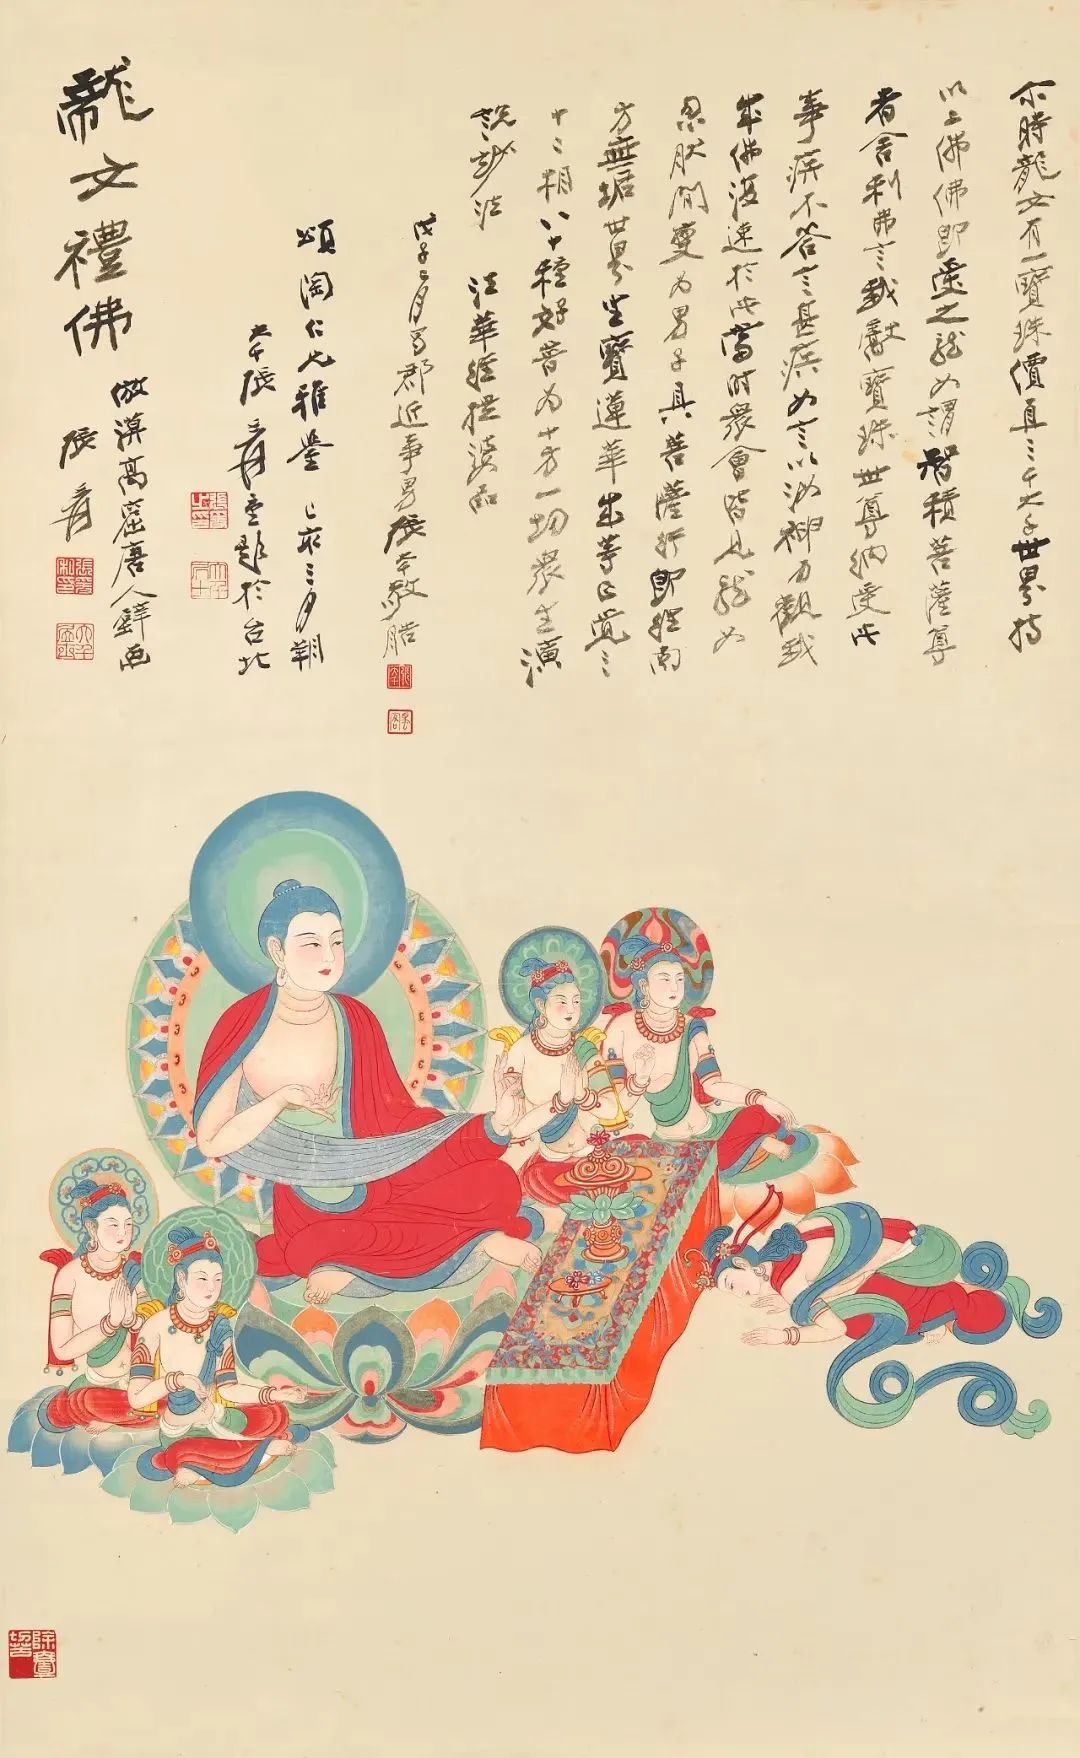 尒時龍女有一寶珠價直三千大千世界持
以上佛佛即受之龍女謂智積菩薩尊
者舍利弗言我獻寶珠世尊納受此
事疾不答言甚疾女言以汝神力觀我
成佛復速於此當時眾會皆見龍女
忽肰間變為男子具菩薩行即往南
方無垢世界坐寶蓮華成等正覺三
十二相八十種好普為十方一切眾生演
說妙法 法華經提婆品
戊子二月蜀郡近事男張大千敬
張大千
蜀客
頌陶仁兄雅鑒 己亥三月朔
大千張爰重題於台北
張爰之印
大千居士
龍女禮佛
倣漠高窟唐人壁画
張爰